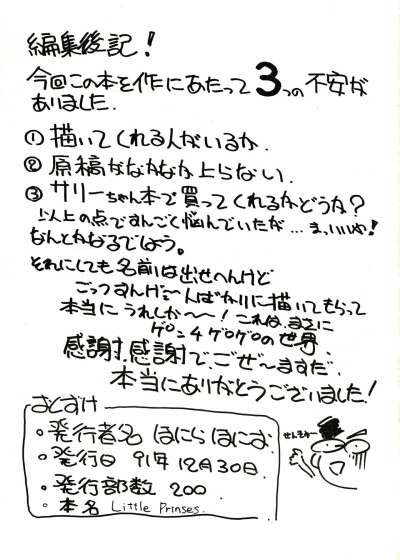 編集後記!
今回この本を作にあたって3つの不安が
ありました.
① 描いてくれる人がいるか.
② 原稿がなかなか上らない.
③ サリーちゃん本で買ってくれるかどうか?
以上の点ですんごく悩んでいたが…まっいいか!
なんとかなるでしょう。
それにしても名前は出せへんけど
ごっつすんげ〜人ばかりに描いてもらって
本当にうれしか〜〜! これは、まさに
感謝、感謝で、ござ〜ますだ.
本当にありがとうございました!
おくずけ
・発行者名 はにらはにお
・発行日 91年12月30日.
・発行部数 200
・本名 Little Prinses.